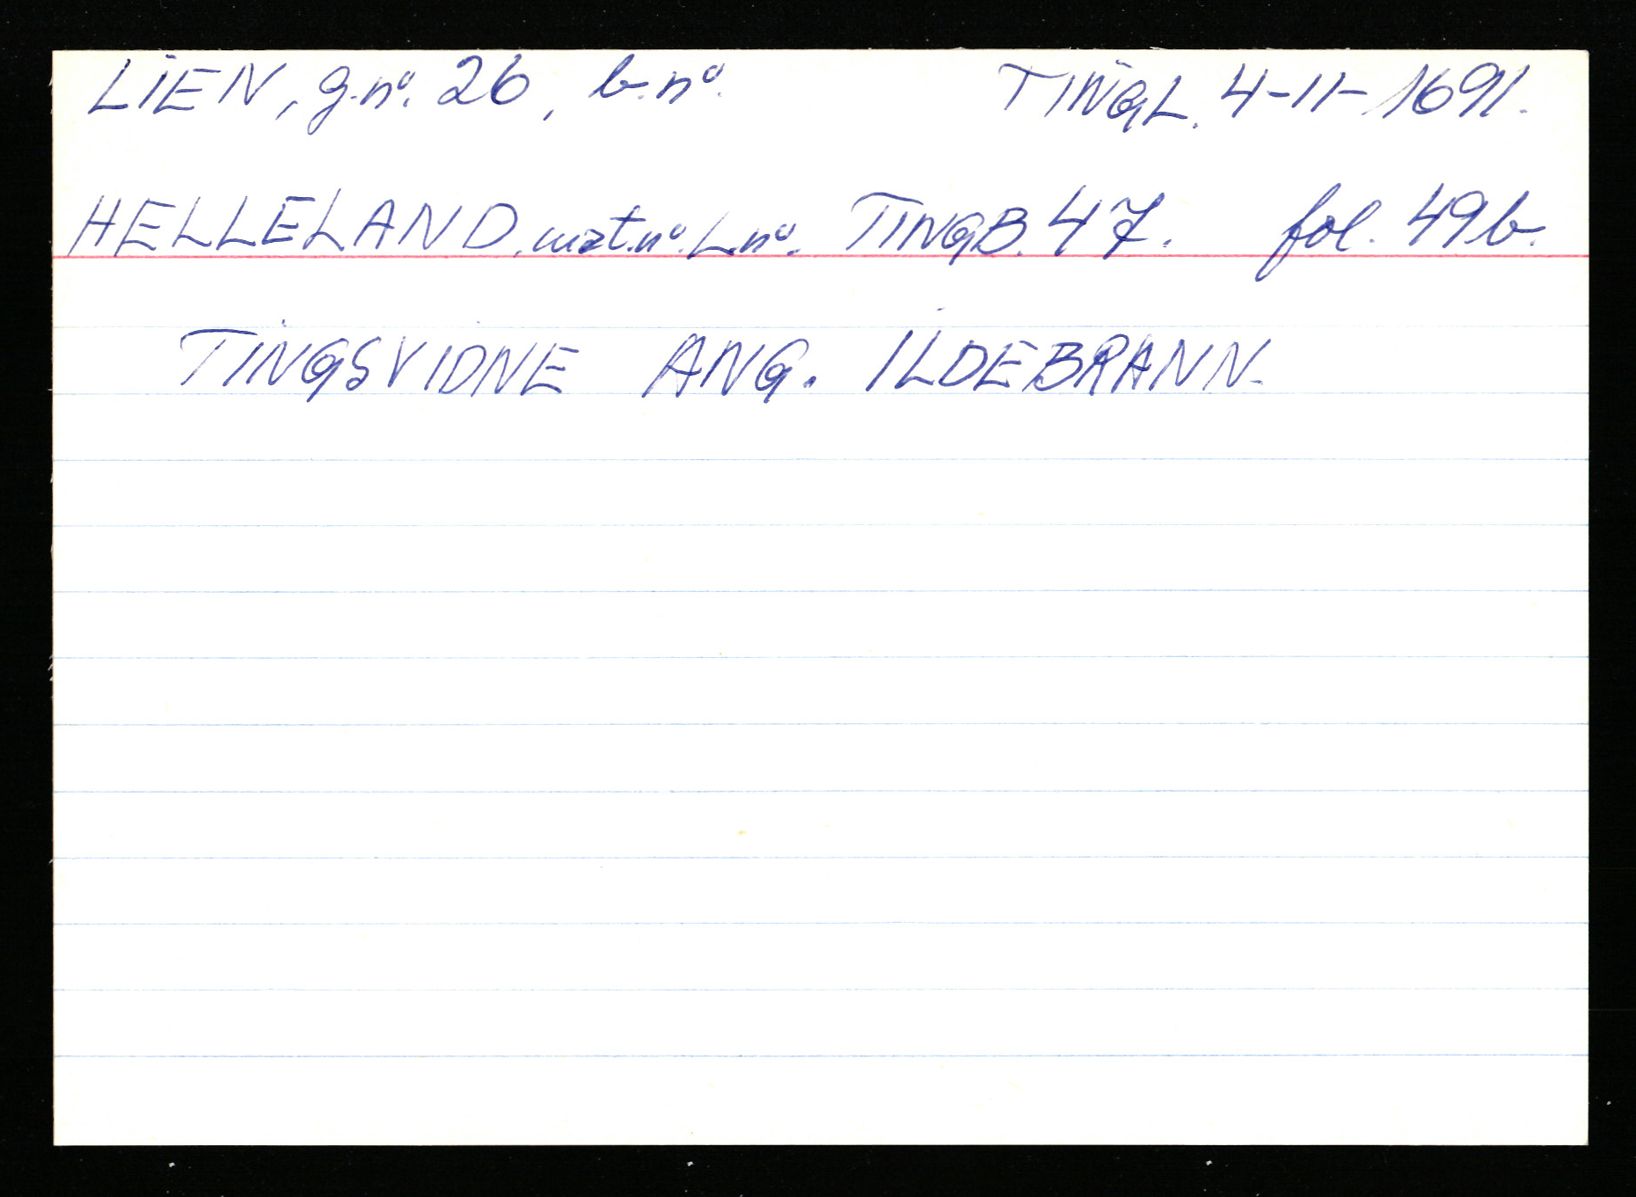 LIEN, g.nº. 26, b.nº. TINGL. 4-11-1691.
HELLELAND, mat.nº. L.nº. TINGB. 47. fol. 49b.
TINGSVIDNE ANG. ILDEBRANN.